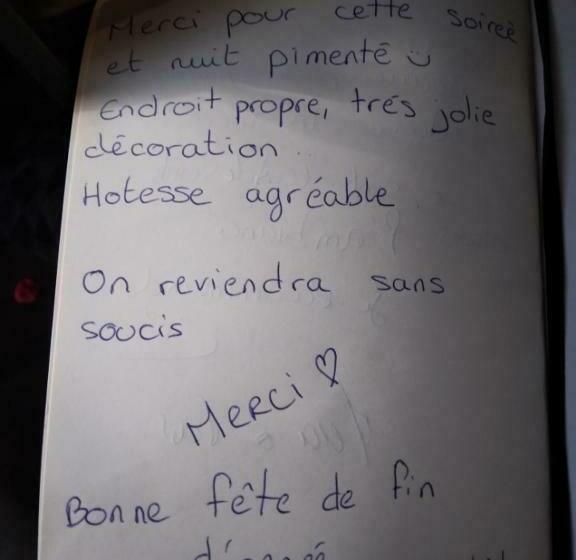 Merci pour cette soireé
et nuit pimenté ☺
Endroit propre, trés jolie
décoration
Hotesse agréable
On reviendra sans
soucis
Merci ♡
Bonne fête de fin